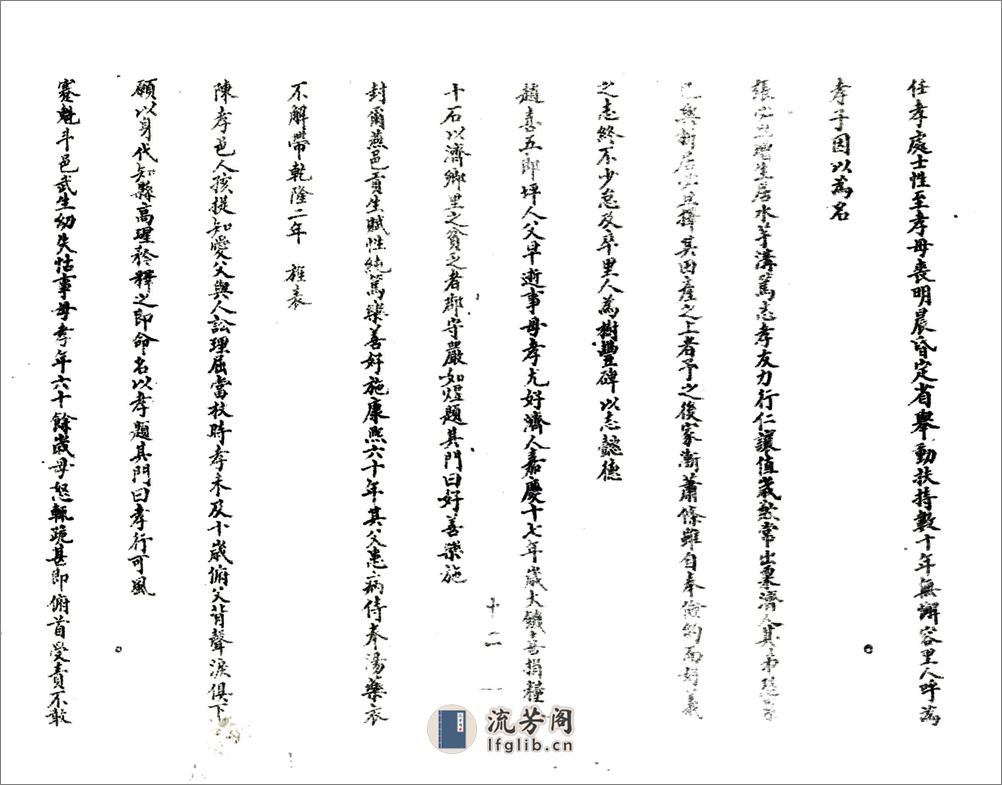 任孝處士性至孝母喪明晨昏定省舉動扶持數十年無懈容里人呼為
孝子因以為名
張 生居水芋溝篤志孝友力行仁讓值歲歉常出粟濟人其弟
已與析居 擇其田產之上者予之後家漸蕭條雖自奉儉約而好義
之志終不少怠及卒里人為樹豐碑以志懿德
趙喜五郎坪人父早逝事母孝尤好濟人嘉慶十七年歲大饑喜捐糧
十石以濟鄉里之貧乏者郡守嚴如煜題其門曰好善樂施
封爾燕邑貢生賦性純篤樂善好施康熙六十年其父患病侍奉湯藥衣
不解帶乾隆二年 旌表
陳孝邑人孩提知愛父與人訟理屈當杖時孝未及十歲俯父背聲淚俱下
願以身代知縣高理矜釋之即命名以孝題其門曰孝行可風
蹇魁斗邑武生幼失怙事母孝年六十餘歲母怒輒跪甚即俯首受責不敢
十二
流芳阁
lfglib.cn